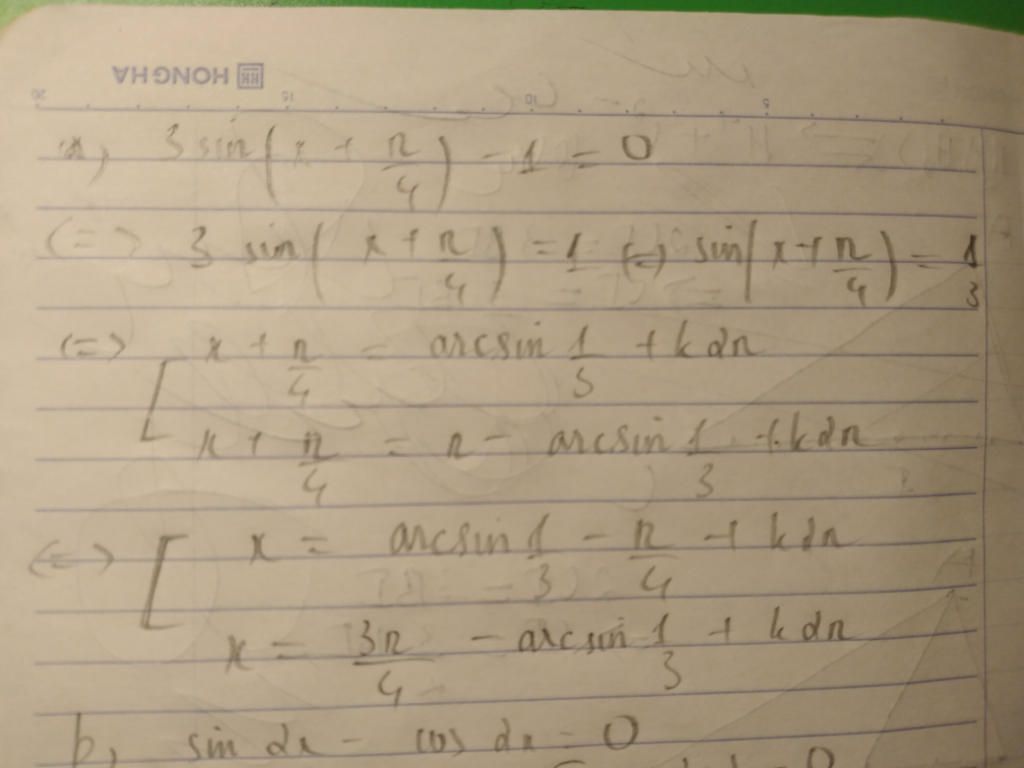 HONG HA
20 15 10 5
a, 3 sin(x + π/4) - 1 = 0
<=> 3 sin(x + π/4) = 1 <=> sin(x + π/4) = 1/3
<=> [ x + π/4 = arcsin 1/3 + k2π
x + π/4 = π - arcsin 1/3 + k2π
<=> [ x = arcsin 1/3 - π/4 + k2π
x = 3π/4 - arcsin 1/3 + k2π
b, sin 2x - cos 2x = 0